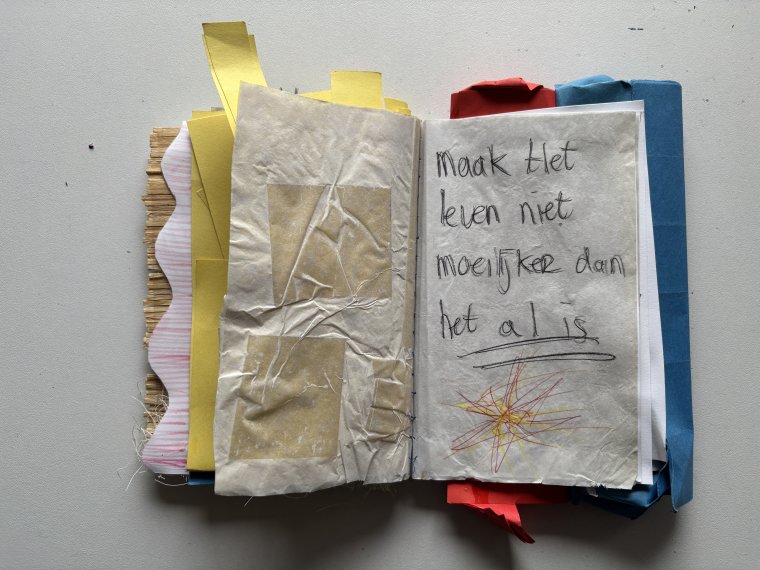 maak Het
leven niet
moeilijker dan
het al is